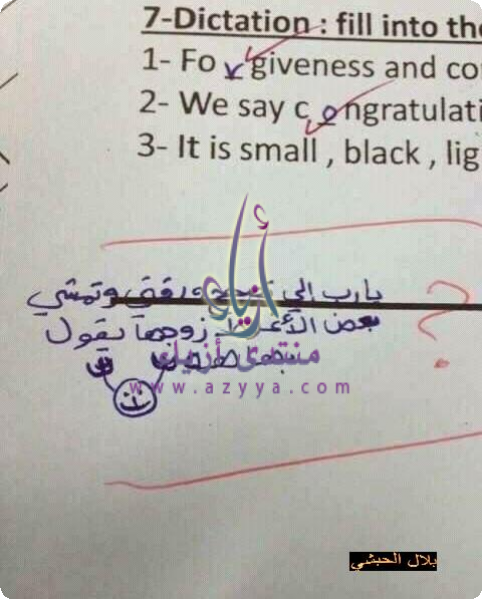 7-Dictation : fill into the
1- Fo r giveness and co
2- We say c o ngratulati
3- It is small , black , lig
يارب الي تصحح ورقتي وتمشي
بعض الأغلاط زوجها يقول
آمين
أزياء
منتدى أزياء
www.azyya.com
؟
بلال الحبشي